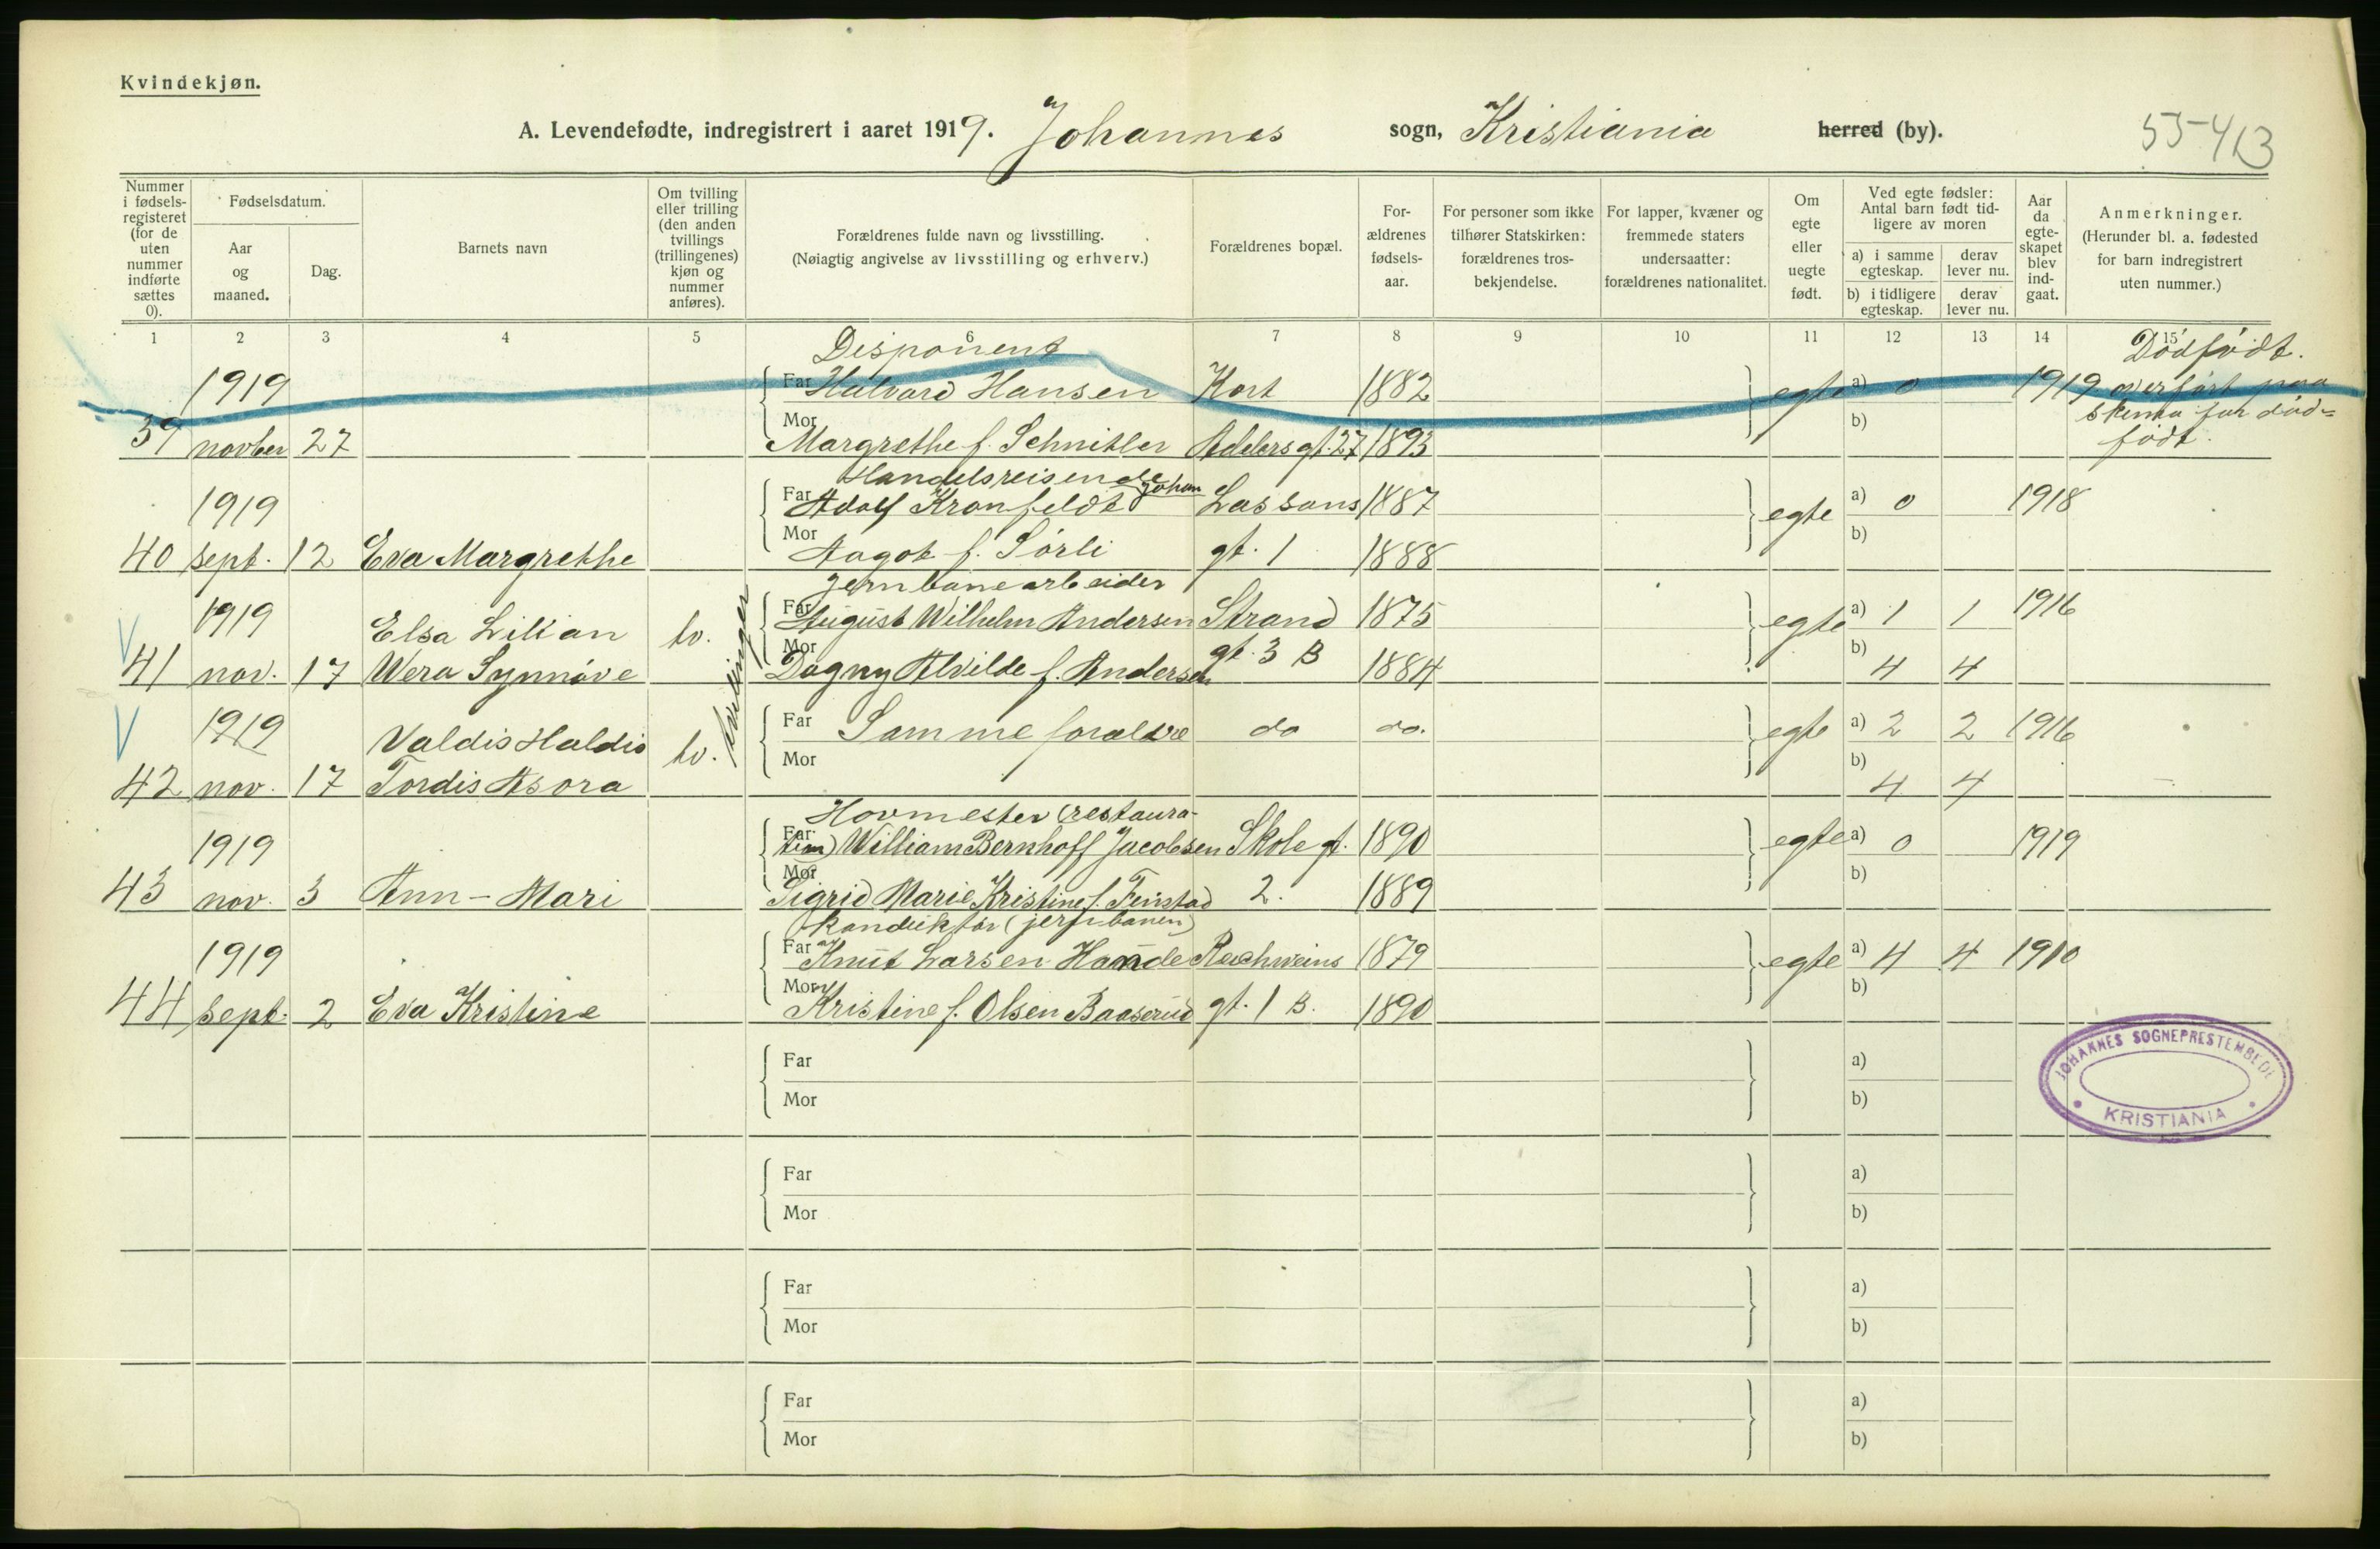 Kvindekjøn.
A. Levendefødte, indregistrert i aaret 1919. Johannes sogn, Kristiania herred (by).
55-4/13
Nummer i fødselsregisteret (for de uten nummer indførte sættes 0).
Fødselsdatum.
Aar og maaned.
Dag.
Barnets navn
Om tvilling eller trilling (den anden tvillings (trillingenes) kjøn og nummer anføres).
Forældrenes fulde navn og livsstilling.
(Nøiagtig angivelse av livsstilling og erhverv.)
Forældrenes bopæl.
Forældrenes fødselsaar.
For personer som ikke tilhører Statskirken: forældrenes trosbekjendelse.
For lapper, kvæner og fremmede staters undersaatter: forældrenes nationalitet.
Om egte eller uegte født.
Ved egte fødsler: Antal barn født tidligere av moren
a) i samme egteskap.
derav lever nu.
b) i tidligere egteskap.
derav lever nu.
Aar da egteskapet blev indgaat.
Anmerkninger.
(Herunder bl. a. fødested for barn indregistrert uten nummer.)
1 2 3 4 5 6 7 8 9 10 11 12 13 14 15
Disponent Dødfødt.
1919 Far Halvard Hansen Kort 1882 egte a) 0 1919 overført paa
skema for død-
39 novber 27 Mor Margrethe f. Schnitler Adelers gt. 27 1893 b) født.
Handelsreisende
1919 Far Adolf Johan Kronfeldt Lassons 1887 egte a) 0 1918
40 sept. 12 Eva Margrethe Mor Aagot f. Sørli gt. 1 1888 b)
Jernbanearbeider
1919 Elsa Lilian tv. tvillinger Far August Wilhelm Andersen Strand 1875 egte a) 1 1 1916
V 41 nov. 17 Wera Synnöve Mor Dagny Alvilde f. Andersen gt. 3 B 1884 b) 4 4
V 1919 Valdis Haldis tv. Far Samme forældre do do. egte a) 2 2 1916
42 nov. 17 Tordis Asora Mor b) 4 4
Hovmester (restaura-
1919 Far tion) William Bernhoff Jacobsen Skole gt. 1890 egte a) 0 1919
43 nov. 3 Ann-Mari Mor Sigrid Marie Kristine f. Finstad 2. 1889 b)
Konduktør (jernbanen)
1919 Far Knut Larsen Hande Rachweins 1879 egte a) 4 4 1910
44 sept. 2 Eva Kristine Mor Kristine f. Olsen Baaserud gt. 1 B. 1890 b)
JOHANNES SOGNEPRESTEMBEDE
KRISTIANIA
Far a)
Mor b)
Far a)
Mor b)
Far a)
Mor b)
Far a)
Mor b)